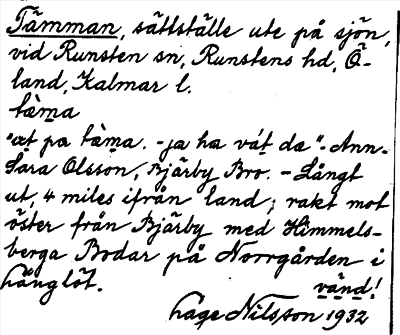 Tämman, sättställe ute på sjön,
vid Runsten sn, Runstens hd, Ö-
land, Kalmar l.
tæ̀ma
"æt pa tæ̀ma. - ja ha vát da". Ann-
Sara Olsson, Bjärby Bro. - Långt
ut, 4 miles ifrån land; rakt mot
öster från Bjärby med Himmels-
berga Bodar på Norrgården i
Långlöt. vänd!
Lage Nilsson 1932